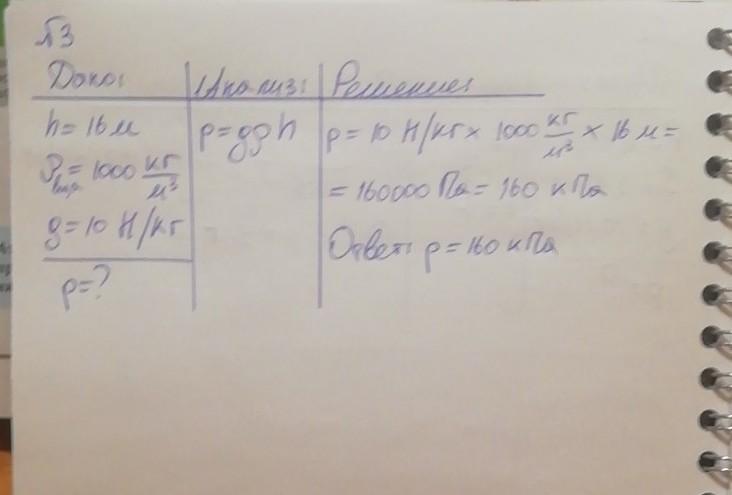 №3
Дано:
Анализ:
Решение:
h = 16 м
p = gρh
p = 10 Н/кг × 1000 кг/м³ × 16 м =
ρ = 1000 кг/м³
= 160000 Па = 160 кПа
g = 10 Н/кг
Ответ: p = 160 кПа
p = ?